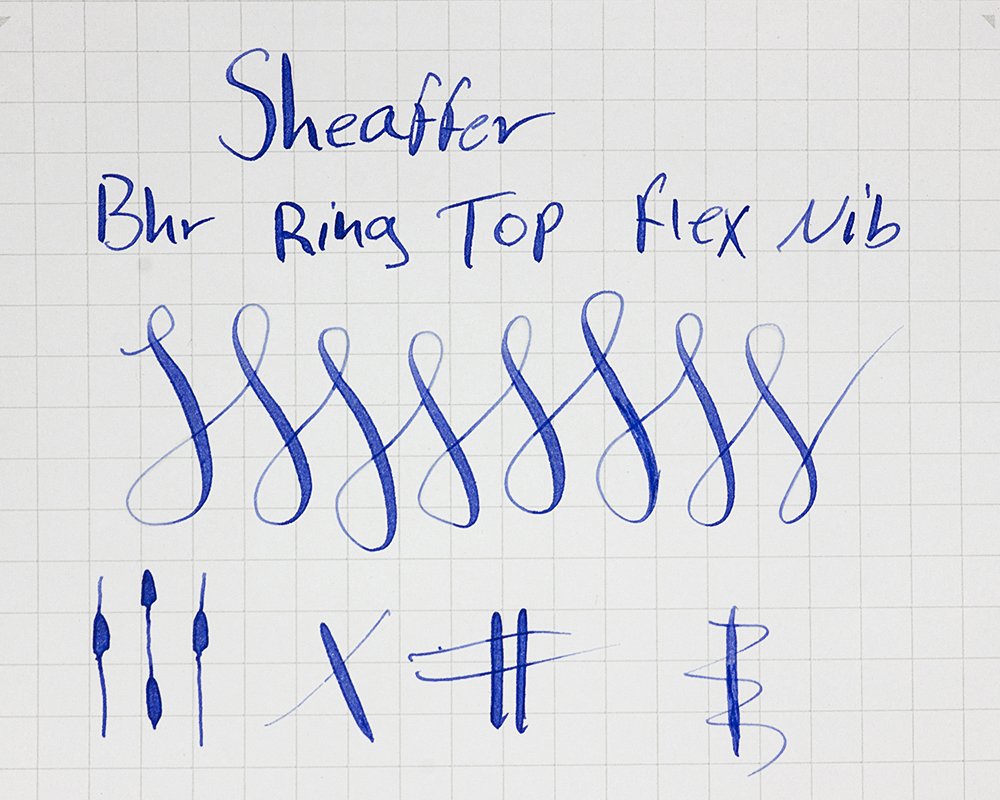 Sheaffer
Bhr Ring Top Flex Nib